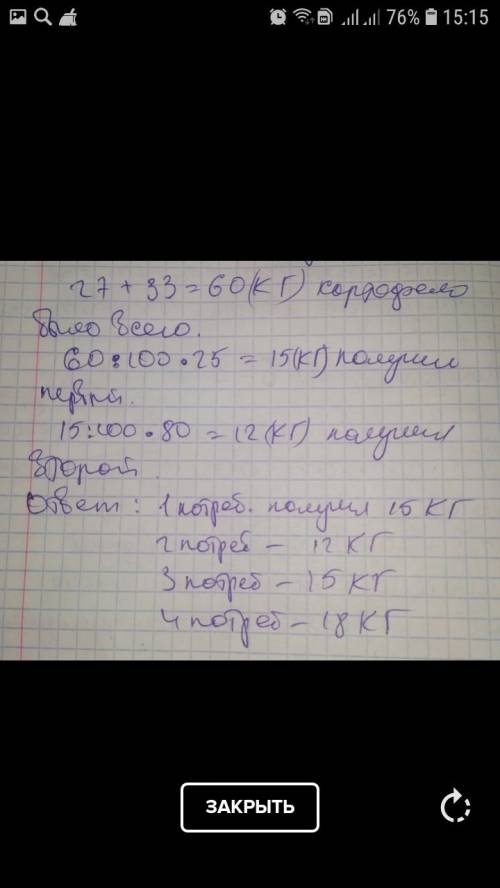 76% 15:15
27 + 33 = 60(КГ) картофеля
было всего.
60:100•25 = 15(КГ) получил
первый.
15:100•80 = 12(КГ) получил
второй.
Ответ: 1 потреб. получил 15 КГ
2 потреб – 12 КГ
3 потреб – 15 КГ
4 потреб – 18 КГ
ЗАКРЫТЬ